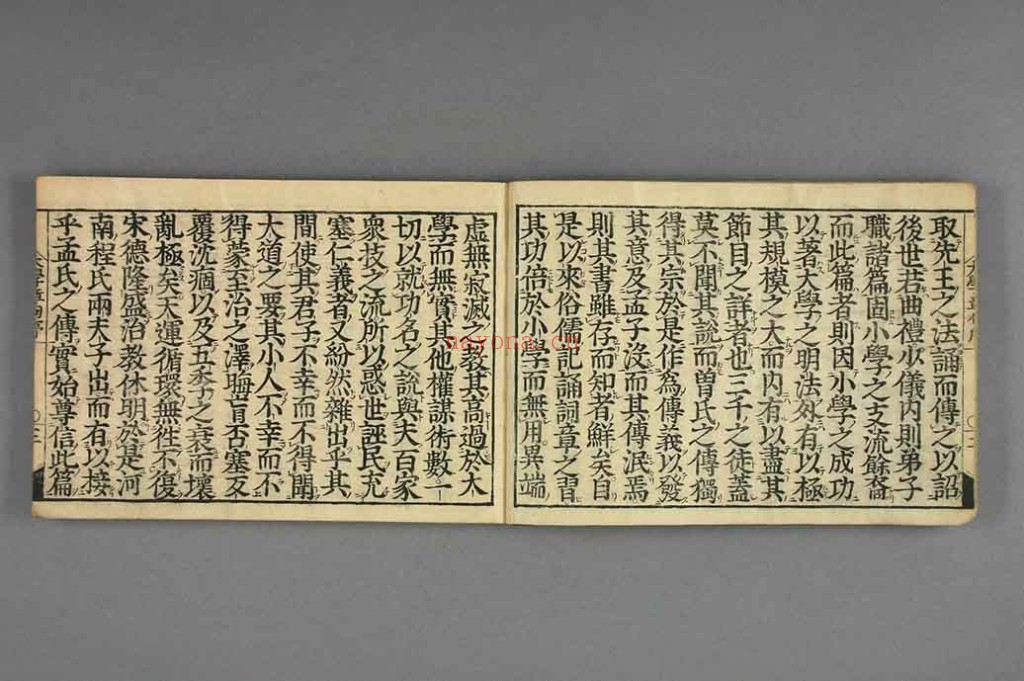 取先王之法誦而傳之以詔
後世若曲禮少儀內則弟子
職諸篇固小學之支流餘裔
而此篇者則因小學之成功
以著大學之明法外有以極
其規模之大而內有以盡其
節目之詳者也三千之徒蓋
莫不聞其說而曽氏之傳獨
得其宗於是作爲傳義以發
其意及孟子沒而其傳泯焉
則其書雖存而知者鮮矣自
是以來俗儒記誦詞章之習
其功倍於小學而無用異端
虛無寂滅之教其高過於大
學而無實其他權謀術數一
切以就功名之說與夫百家
衆技之流所以惑世誣民充
塞仁義者又紛然雜出乎其
間使其君子不幸而不得聞
大道之要其小人不幸而不
得蒙至治之澤晦盲否塞反
覆沈痼以及五季之衰而壞
亂極矣天運循環無徃不復
宋德隆盛治教休明於是河
南程氏兩夫子出而有以接
乎孟氏之傳實始尊信此篇
nayona.cn